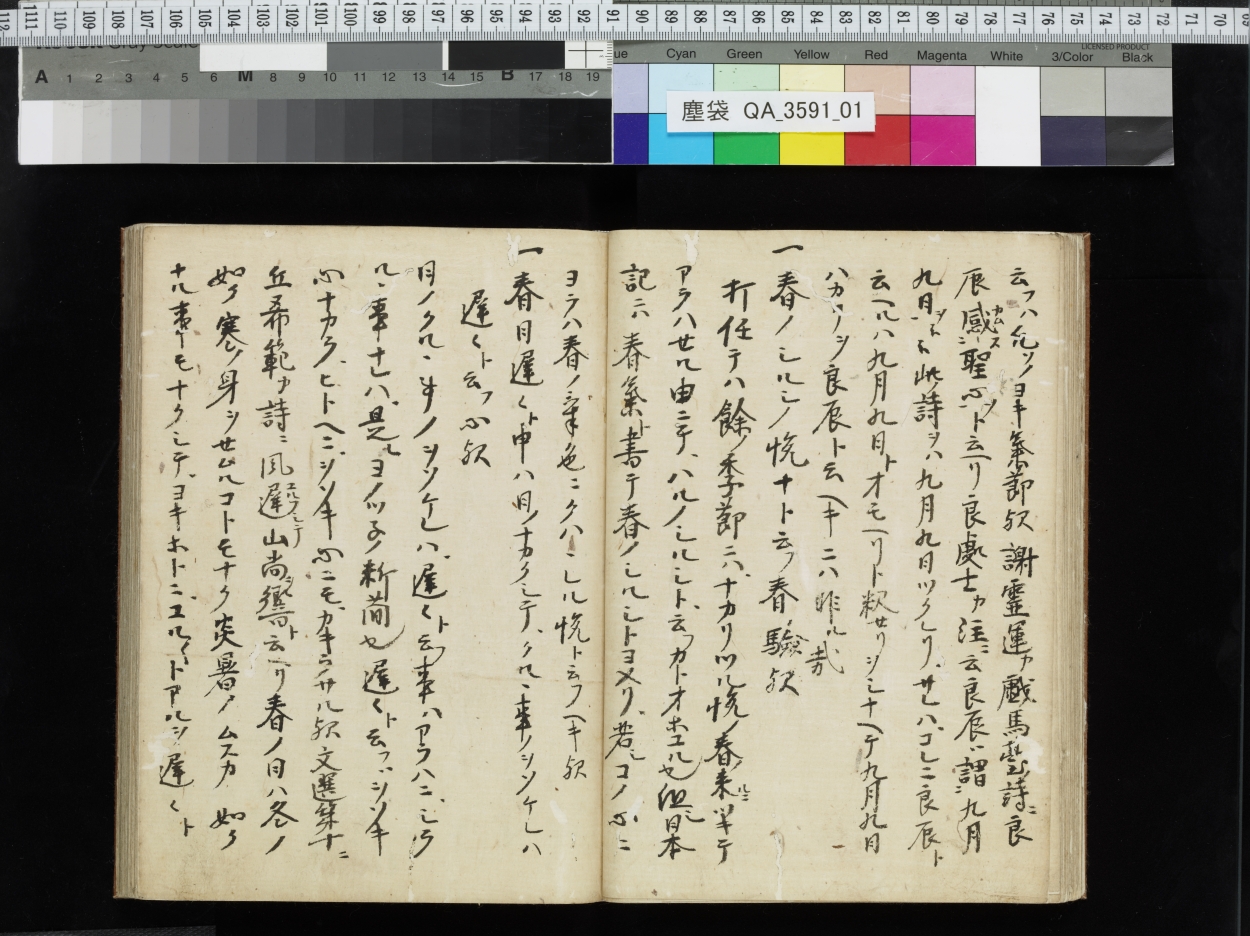 塵袋 QA_3591_01
云フハ
ノヨキ氣節歟 謝靈運カ戯馬臺詩ニ良
辰感聖心ト云ヘリ良處士カ注ニ云良辰ハ謂九月
九日 此詩ヲハ九月九日ツクレリサレハコレニ良辰ト
云ヘルハ九月九日トオモヘリト釈セリシミナヘテ九月九日
ハカリヲ良辰ト云ヘキニハ非ル哉
一 春ノシルシノ悦ナト云フ春ノ驗歟
打任テハ餘ノ季節ニハナカリツル悦ノ春来
アラハセル由ニテハルノシルシト云フカトオホユル也但シ日本
記ニハ春氣ト書テ春ノシルシトヨメリ若シコノ心ニ
ヨラハ春ノ氣色ニクハ レル悦ト云フヘキ歟
一 春日遅々ト申ハ日ノナカクシテクルヽ事ノシツケレハ
遅々ト云フ心歟
日ノクルヽ事ノシツケレハ遅々ト云フ事ハアラハニシラ
ルヽ事ナレハ是レヨノツ子ノ析
也遅々ト云フハシツキ
心ナカラヒトヘニシツキ心ニモカキラサル歟文選第十二
丘希範カ詩ニ風遅山尚響ト云ヘリ春ノ日ハ冬ノ
如ク寒ノ身ヲセムルコトモナク炎暑ノムスカ如ク
ナル事モナクシテヨキホトニユルヽトアルヲ遅々ト